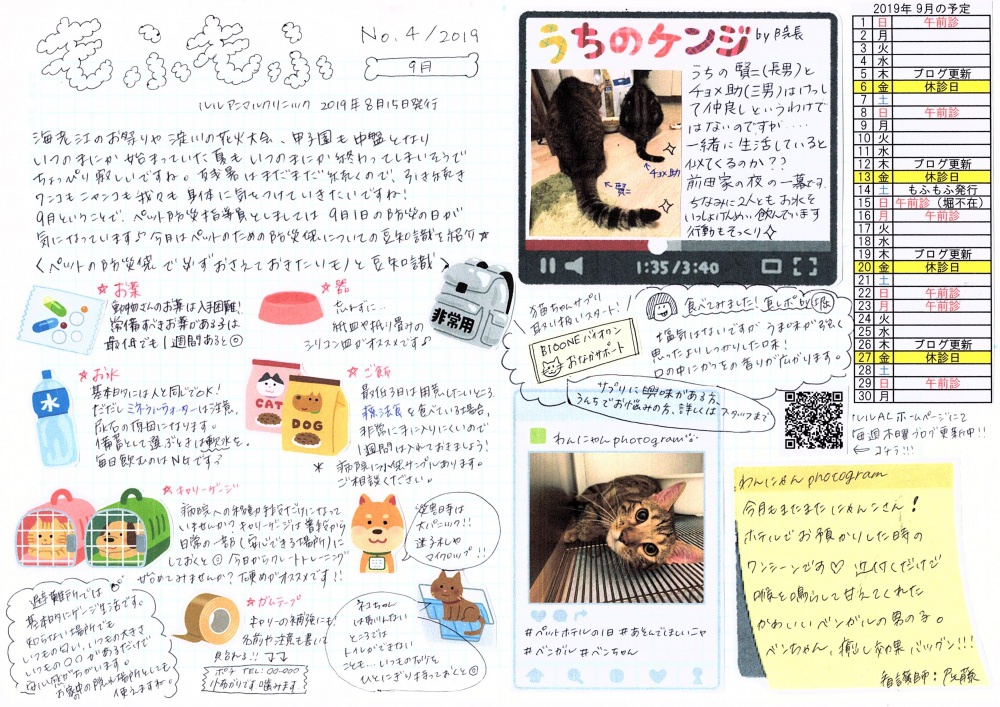 もふもふ
No.4/2019
9月
ルルアニマルクリニック 2019年8月15日発行
海老江のお祭りや淀川の花火大会、甲子園も中盤となり
いつのまにか始まっていた夏もいつのまにか終わってしまいそうで
ちょっぴり寂しいですね。残暑はまだまだ続くので、引き続き
ワンコもニャンコも我々も身体に気をつけていきたいですね!
9月ということで、ペット防災指導員としましては9月1日の防災の日が
気になっています♪今月はペットのための防災袋についての豆知識を紹介☆
〈ペットの防災袋で必ずおさえておきたいモノと豆知識〉
☆お薬
動物さんのお薬は入手困難!
常備すべきお薬がある子は
最低でも1週間あると◎
☆器
忘れずに…
紙皿や折り畳みの
シリコン皿がオススメです♪
非常用
☆お水
水
基本的には人と同じでOK!
ただしミネラルウォーターは注意。
尿石の原因になります。
備蓄として選ぶときは軟水を。
毎日飲むのはNGです♪
CAT
DOG
☆ご飯
最低5日は用意したいところ
療法食を食べている場合、
非常に手に入りにくいので
1週間は入れておきましょう!
*病院に小袋サンプルあります。
ご相談ください。
☆キャリーケージ
病院への移動手段だけになって
いませんか?キャリーケージは普段から
日常の一部(安心できる場所)に
しておくと◎今日からクレートトレーニング
ぜひ始めてみませんか?硬めがオススメです!!
災害時は
大パニック!!
迷子札や
マイクロチップ!!
避難所では
基本的にケージ生活です。
知らない場所でも
いつもの匂い、いつもの大きさ
いつもの○○があるだけで
安心感がちがいます。
お家の隠れ場所としても
使えますね。
☆ガムテープ
キャリーの補強にも!
名前や注意も書いて
貼れる!!
ポチ TEL:00-000
小型かりです 噛みます
ネコちゃん
は慣れない
ところでは
トイレができない
ことも…いつもの砂を
ひとにぎり持っておくと◎
うちのケンジ by院長
うちの賢二(長男)と
チョメ助(三男)はけっし
て仲良しというわけで
はないのですが....
一緒に生活していると
似てくるのか??
前田家の夜の一幕です
ちなみに2人ともお水を
いっしょけんめい飲んでいます
行動もそっくり
チョメ助
賢二
1:35/3:40
猫ちゃんサプリ
取り扱いスタート!
BIOONE バイオワン
おなかサポート
食べてみました!食レポby院長
塩気はないですがうま味が強く
思ったよりしっかりした味!
口の中にかつおの香りが広がります。
サプリに興味がある方、
うんちでお悩みの方、詳しくはスタッフまで
わんにゃんphotogram
#ペットホテルの1日 #あそんでほしいニャ
#ベンガル #ベンちゃん
2019年 9月の予定
1 日 午前診
2 月
3 火
4 水
5 木 ブログ更新
6 金 休診日
7 土
8 日 午前診
9 月
10 火
11 水
12 木 ブログ更新
13 金 休診日
14 土 もふもふ発行
15 日 午前診(堀不在)
16 月 午前診
17 火
18 水
19 木 ブログ更新
20 金 休診日
21 土
22 日 午前診
23 月 午前診
24 火
25 水
26 木 ブログ更新
27 金 休診日
28 土
29 日 午前診
30 月
ルルALホームページにて
毎週木曜ブログ更新中!!
←コチラ!!!
わんにゃんphotogram
今月もまたまたにゃんこさん!
ホテルでお預かりした時の
ワンシーンです♡近付くだけで
喉を鳴らして甘えてくれた
かわいいベンガルの男の子。
ベンちゃん、癒し効果バツグン!!!
看護師:佐藤